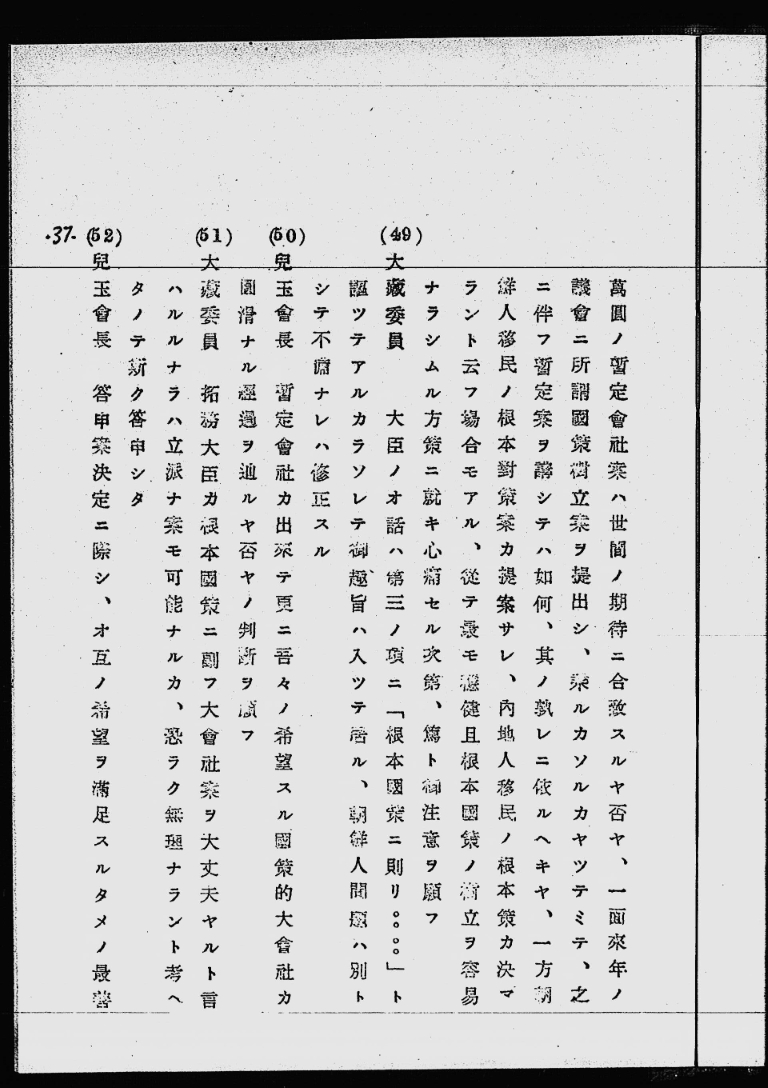 萬圓ノ暫定會社案ハ世間ノ期待ニ合致スルヤ否ヤ、一面來年ノ
議會ニ所謂國策樹立案ヲ提出シ、乘ルカソルカヤツテミテ、之
ニ伴フ暫定案ヲ講シテハ如何、其ノ孰レニ依ルヘキヤ、一方朝
鮮人移民ノ根本對策案カ提案サレ、內地人移民ノ根本策カ決マ
ラント云フ場合モアル、從テ最モ穩健且根本國策ノ樹立ヲ容易
ナラシムル方策ニ就キ心痛セル次第、篤ト御注意ヲ願フ
(49) 大藏委員 大臣ノオ話ハ第三ノ項ニ「根本國策ニ則リ。。。。」ト
謳ツテアルカラソレテ御趣旨ハ入ツテ居ル、朝鮮人問題ハ別ト
シテ不備ナレハ修正スル
(50) 兒玉會長 暫定會社カ出來テ更ニ吾々ノ希望スル國策的大會社カ
圓滑ナル經過ヲ辿ルヤ否ヤノ判斷ヲ願フ
(51) 大藏委員 拓務大臣カ根本國策ニ副フ大會社案ヲ大丈夫ヤルト言
ハルルナラハ立派ナ案モ可能ナルカ、恐ラク無理ナラント考ヘ
タノテ斯ク答申シタ
(52) 兒玉會長 答申案決定ニ際シ、オ互ノ希望ヲ滿足スルタメノ最善
-37-